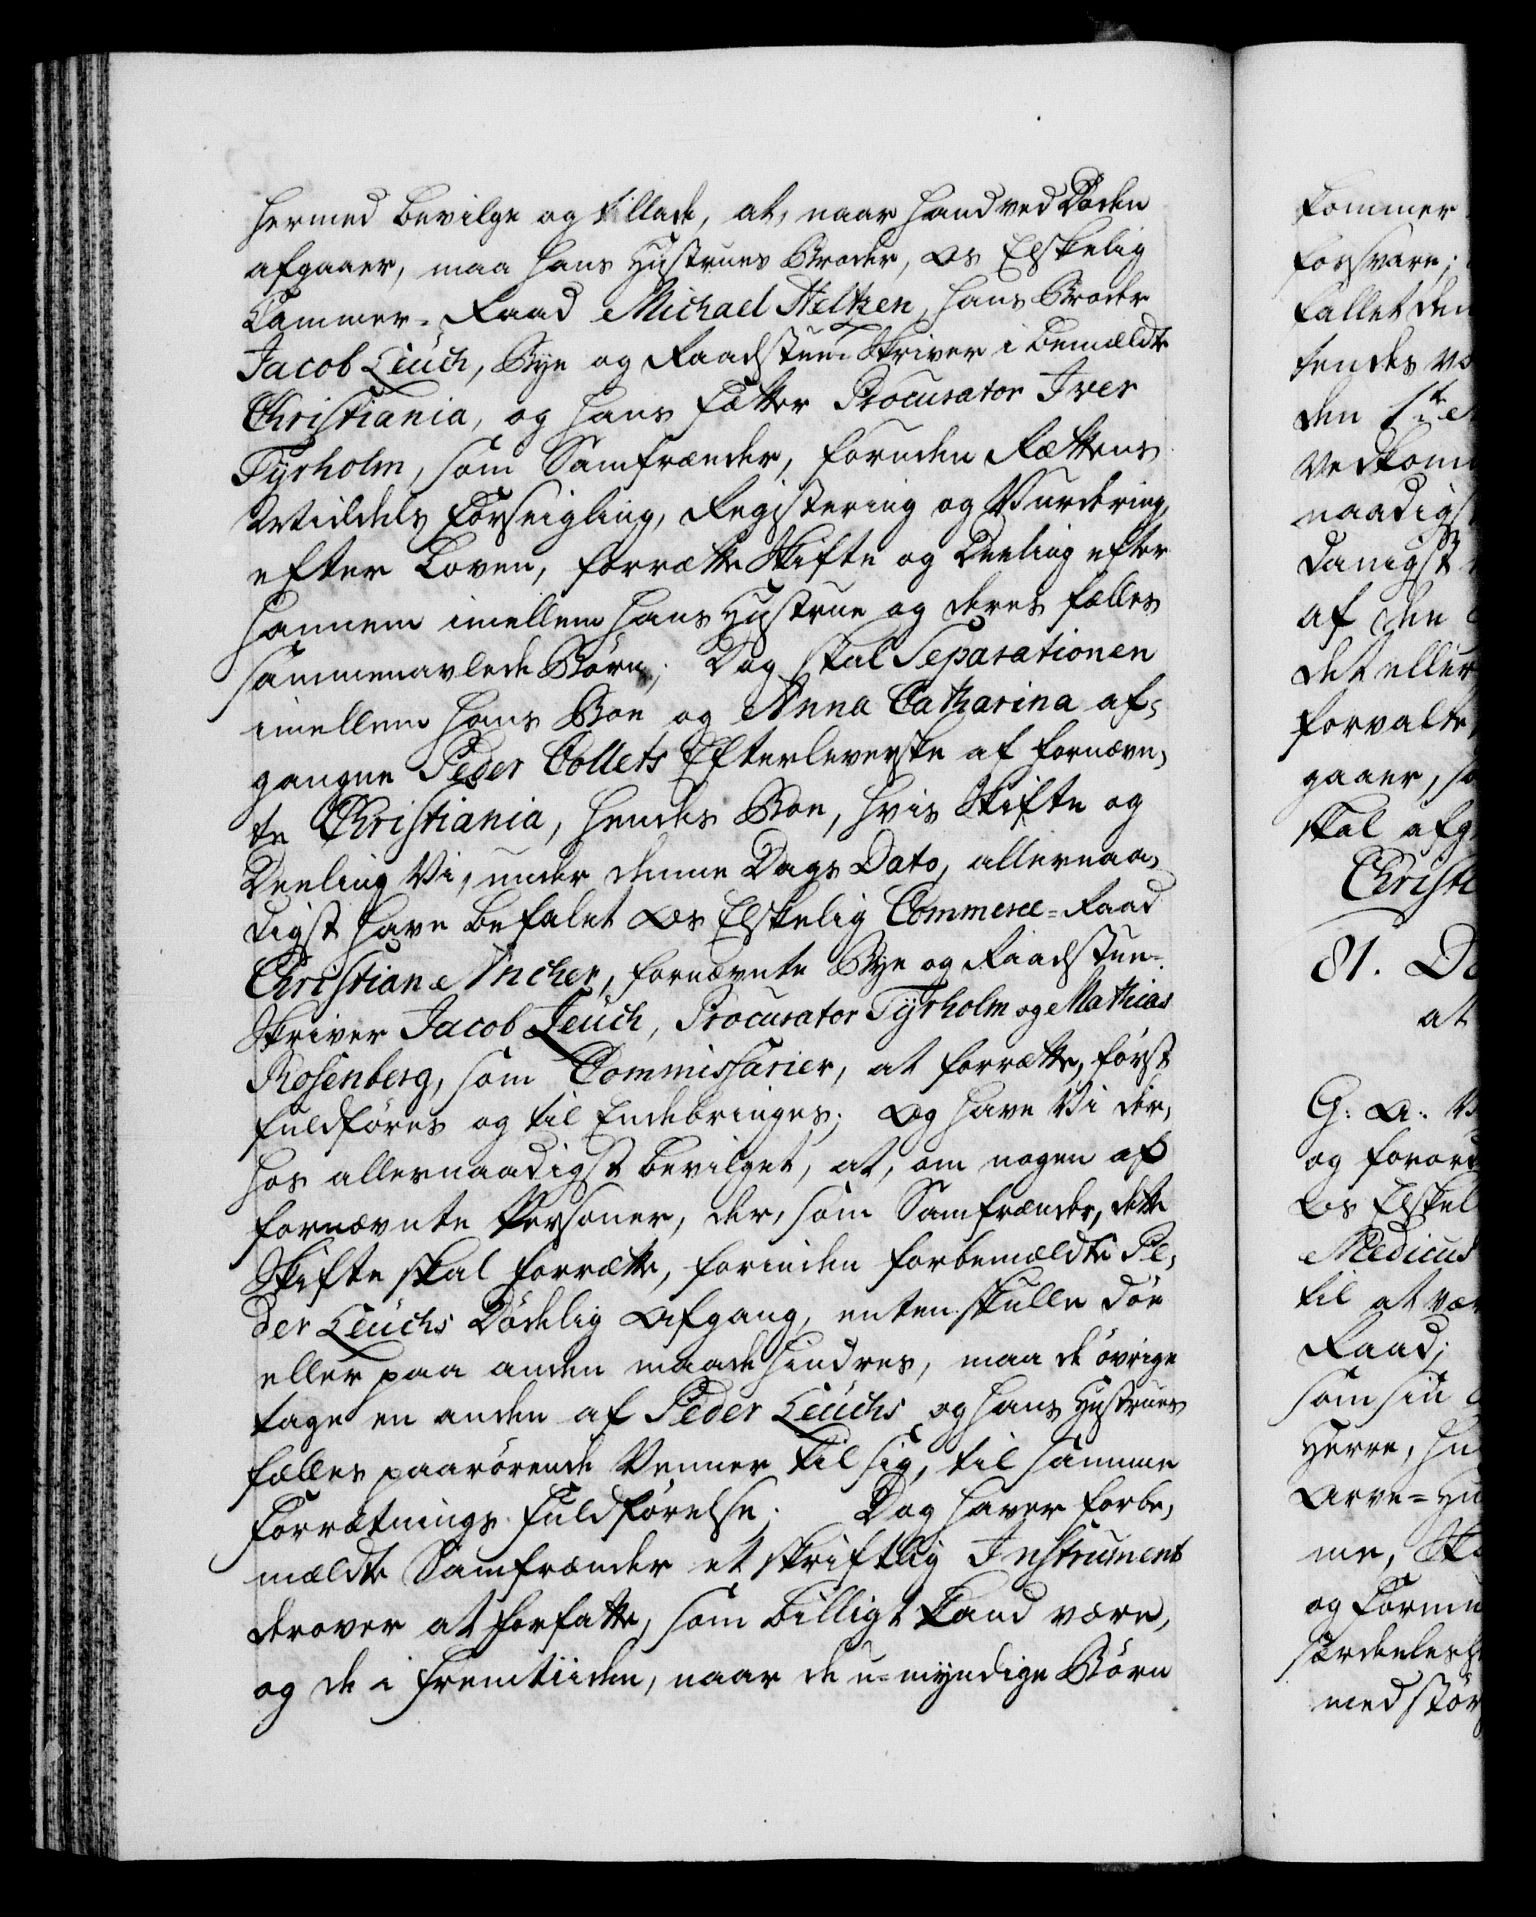 hermed bevilge og tillade, at, naar hand ved Døden
afgaaer, maa hans Hustrues Broder, Os Elskelig
Cammer-Raad Michael Heltzen, hans Broder
Jacob Leuch, Bye og Raadstue-Skriver i bemældte
Christiania, og hans Fætter Procurator Iver
Tyrholm, som Samfrænder, foruden Rættens
Middels Forseigling, Registering og Vurdering,
efter Loven, forrætte Skifte og Deeling efter
hannem imellem hans Hustrue og deres fælles
sammenavlede Børn; Dog skal Separationen
imellem hans Boe og Anna Catharina af-
gangne Peder Collets Efterleverske af fornævn-
te Christiania, hendes Boe, hvis Skifte og
Deeling Vi, under denne Dags Dato, allernaa-
digst have befalet Os Elskelig Commerce-Raad
Christian Ancher, fornævnte Bye og Raadstue-
Skriver Jacob Leuch, Procurator Tyrholm og Mathias
Rosenberg, som Commissarier, at forrætte, først
fuldføres og til Endebringes; Og have Vi der-
hos allernaadigst bevilget, at, om nogen af
fornævnte Personer, der, som Samfrænder, dette
Skifte skal forrætte, forinden forbemældte Pe-
der Leuchs Dødelig Afgang, enten skulle døe
eller paa anden maade hindres, maa de øvrige
tage en anden af Peder Leuchs og hans Hustrues
fælles paarørende Venner til sig, til samme
Forrætnings Fuldførelse; Dog haver forbe-
mældte Samfrænder et skriftlig Instrument
derover at forfatte, som billigt Kand være,
og de i Fremtiiden, naar de u-myndige Børn
kommer
forsvare;
faldet den
tendes vo
den 1ste
Vedkom
naadigs
danigst
af den
det eller
forvalte
gaaer, so
skal afg
Christi
81. D
at
G: A: V
og forord
Os Elskel
Medicus
til at vær
Raad;
som sin
Herre, hu
Arve-Hu
me, Sk
og Formu
særdeeles
med stør